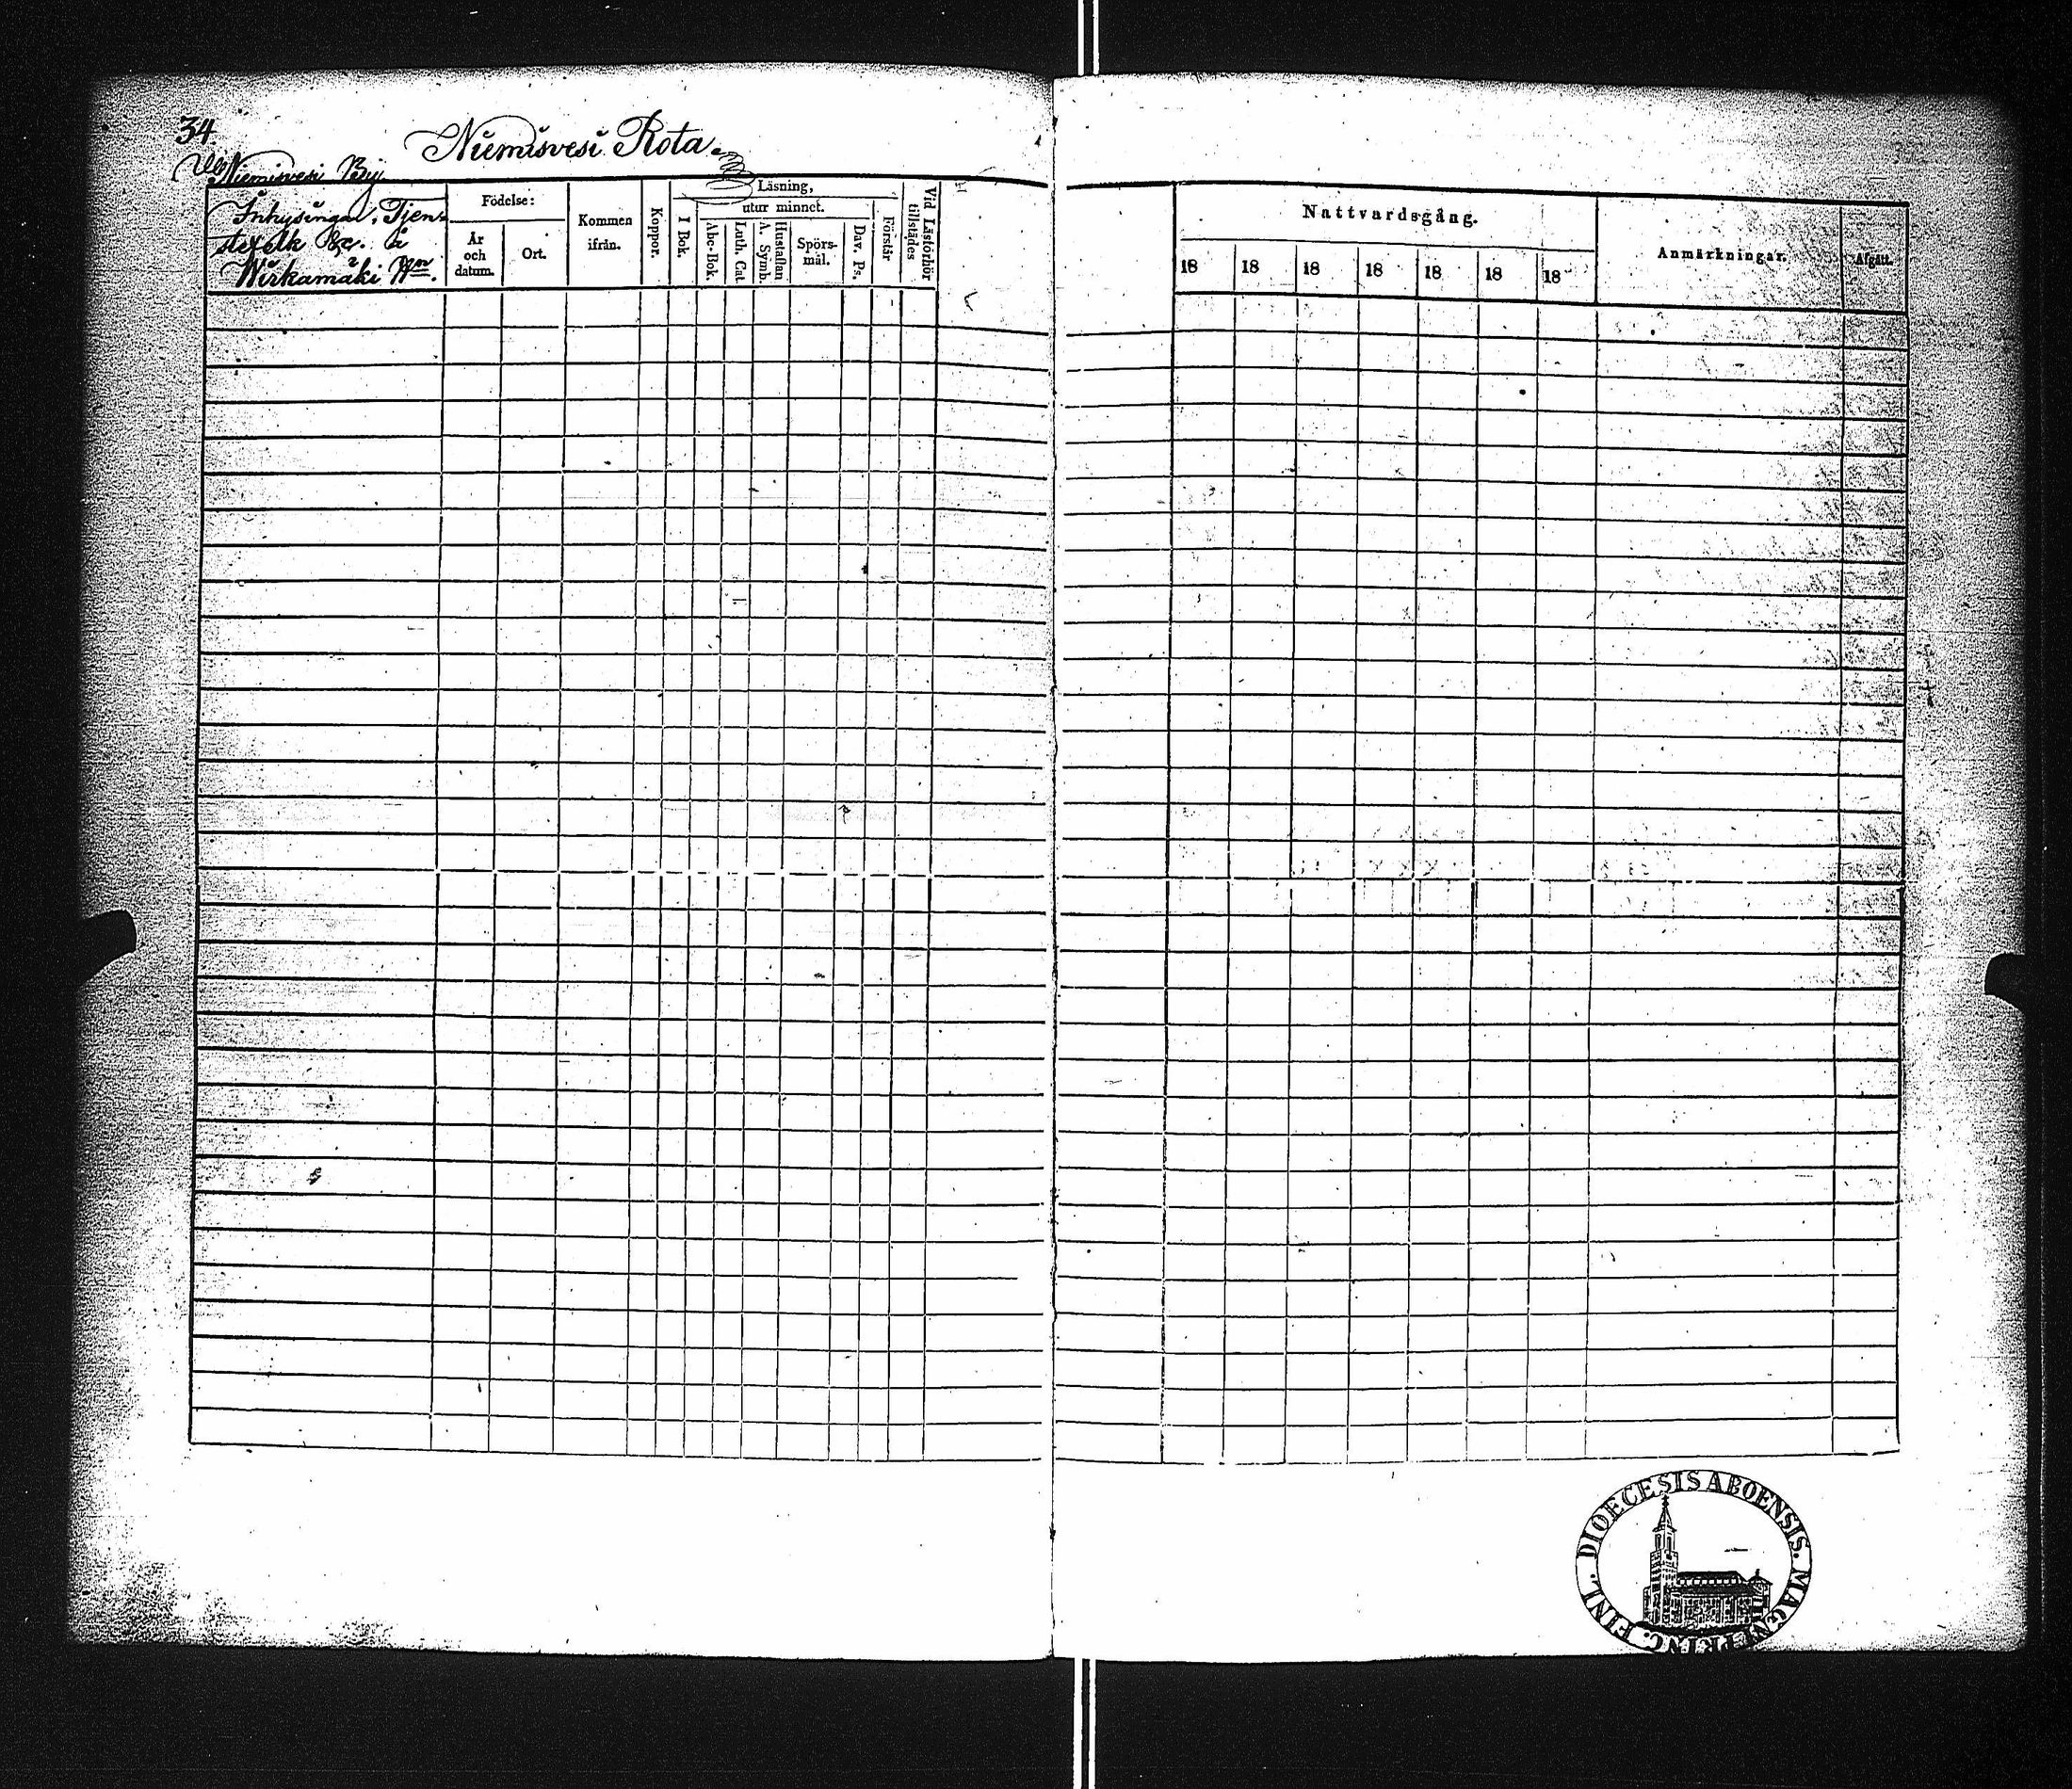 34.
Niemisvesi Rota.
Niemisvesi By.
Inhysingar, Tjen-
stefolk &c. å
Wirkamäki Hn.
Födelse:
År
och
datum.
Ort.
Kommen
ifrån.
Koppor.
Läsning,
I Bok.
utur minnet.
Abc-Bok.
Luth. Cat.
Hustaflan
A. Symb.
Spörs-
mål.
Dav. Ps.
Förstår
Vid Läsförhör
tillstädes
Nattvardsgång.
18 18 18 18 18 18 18
Anmärkningar.
Afgått.
DIOECESIS ABOENSIS. MAGNI PRINC. FINL.